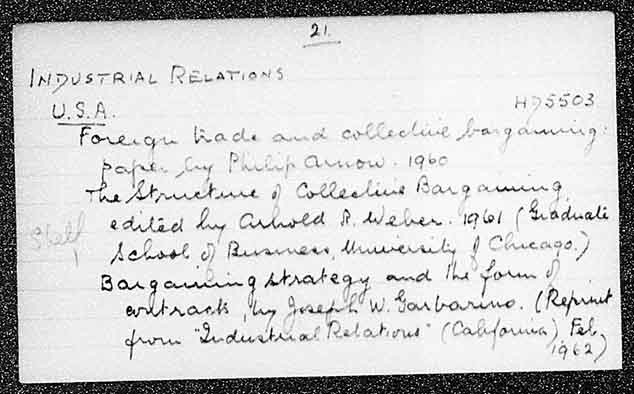 21.
INDUSTRIAL RELATIONS
U.S.A.
HD5503
Foreign trade and collective bargaining:
paper by Philip Arnow. 1960
The Structure of Collective Bargaining
edited by Arnold R. Weber. 1961 (Graduate
Shelf
School of Business, University of Chicago.)
Bargaining strategy and the form of
contract, by Joseph W. Garbarino. (Reprint
from "Industrial Relations" (California) Feb.
1962)